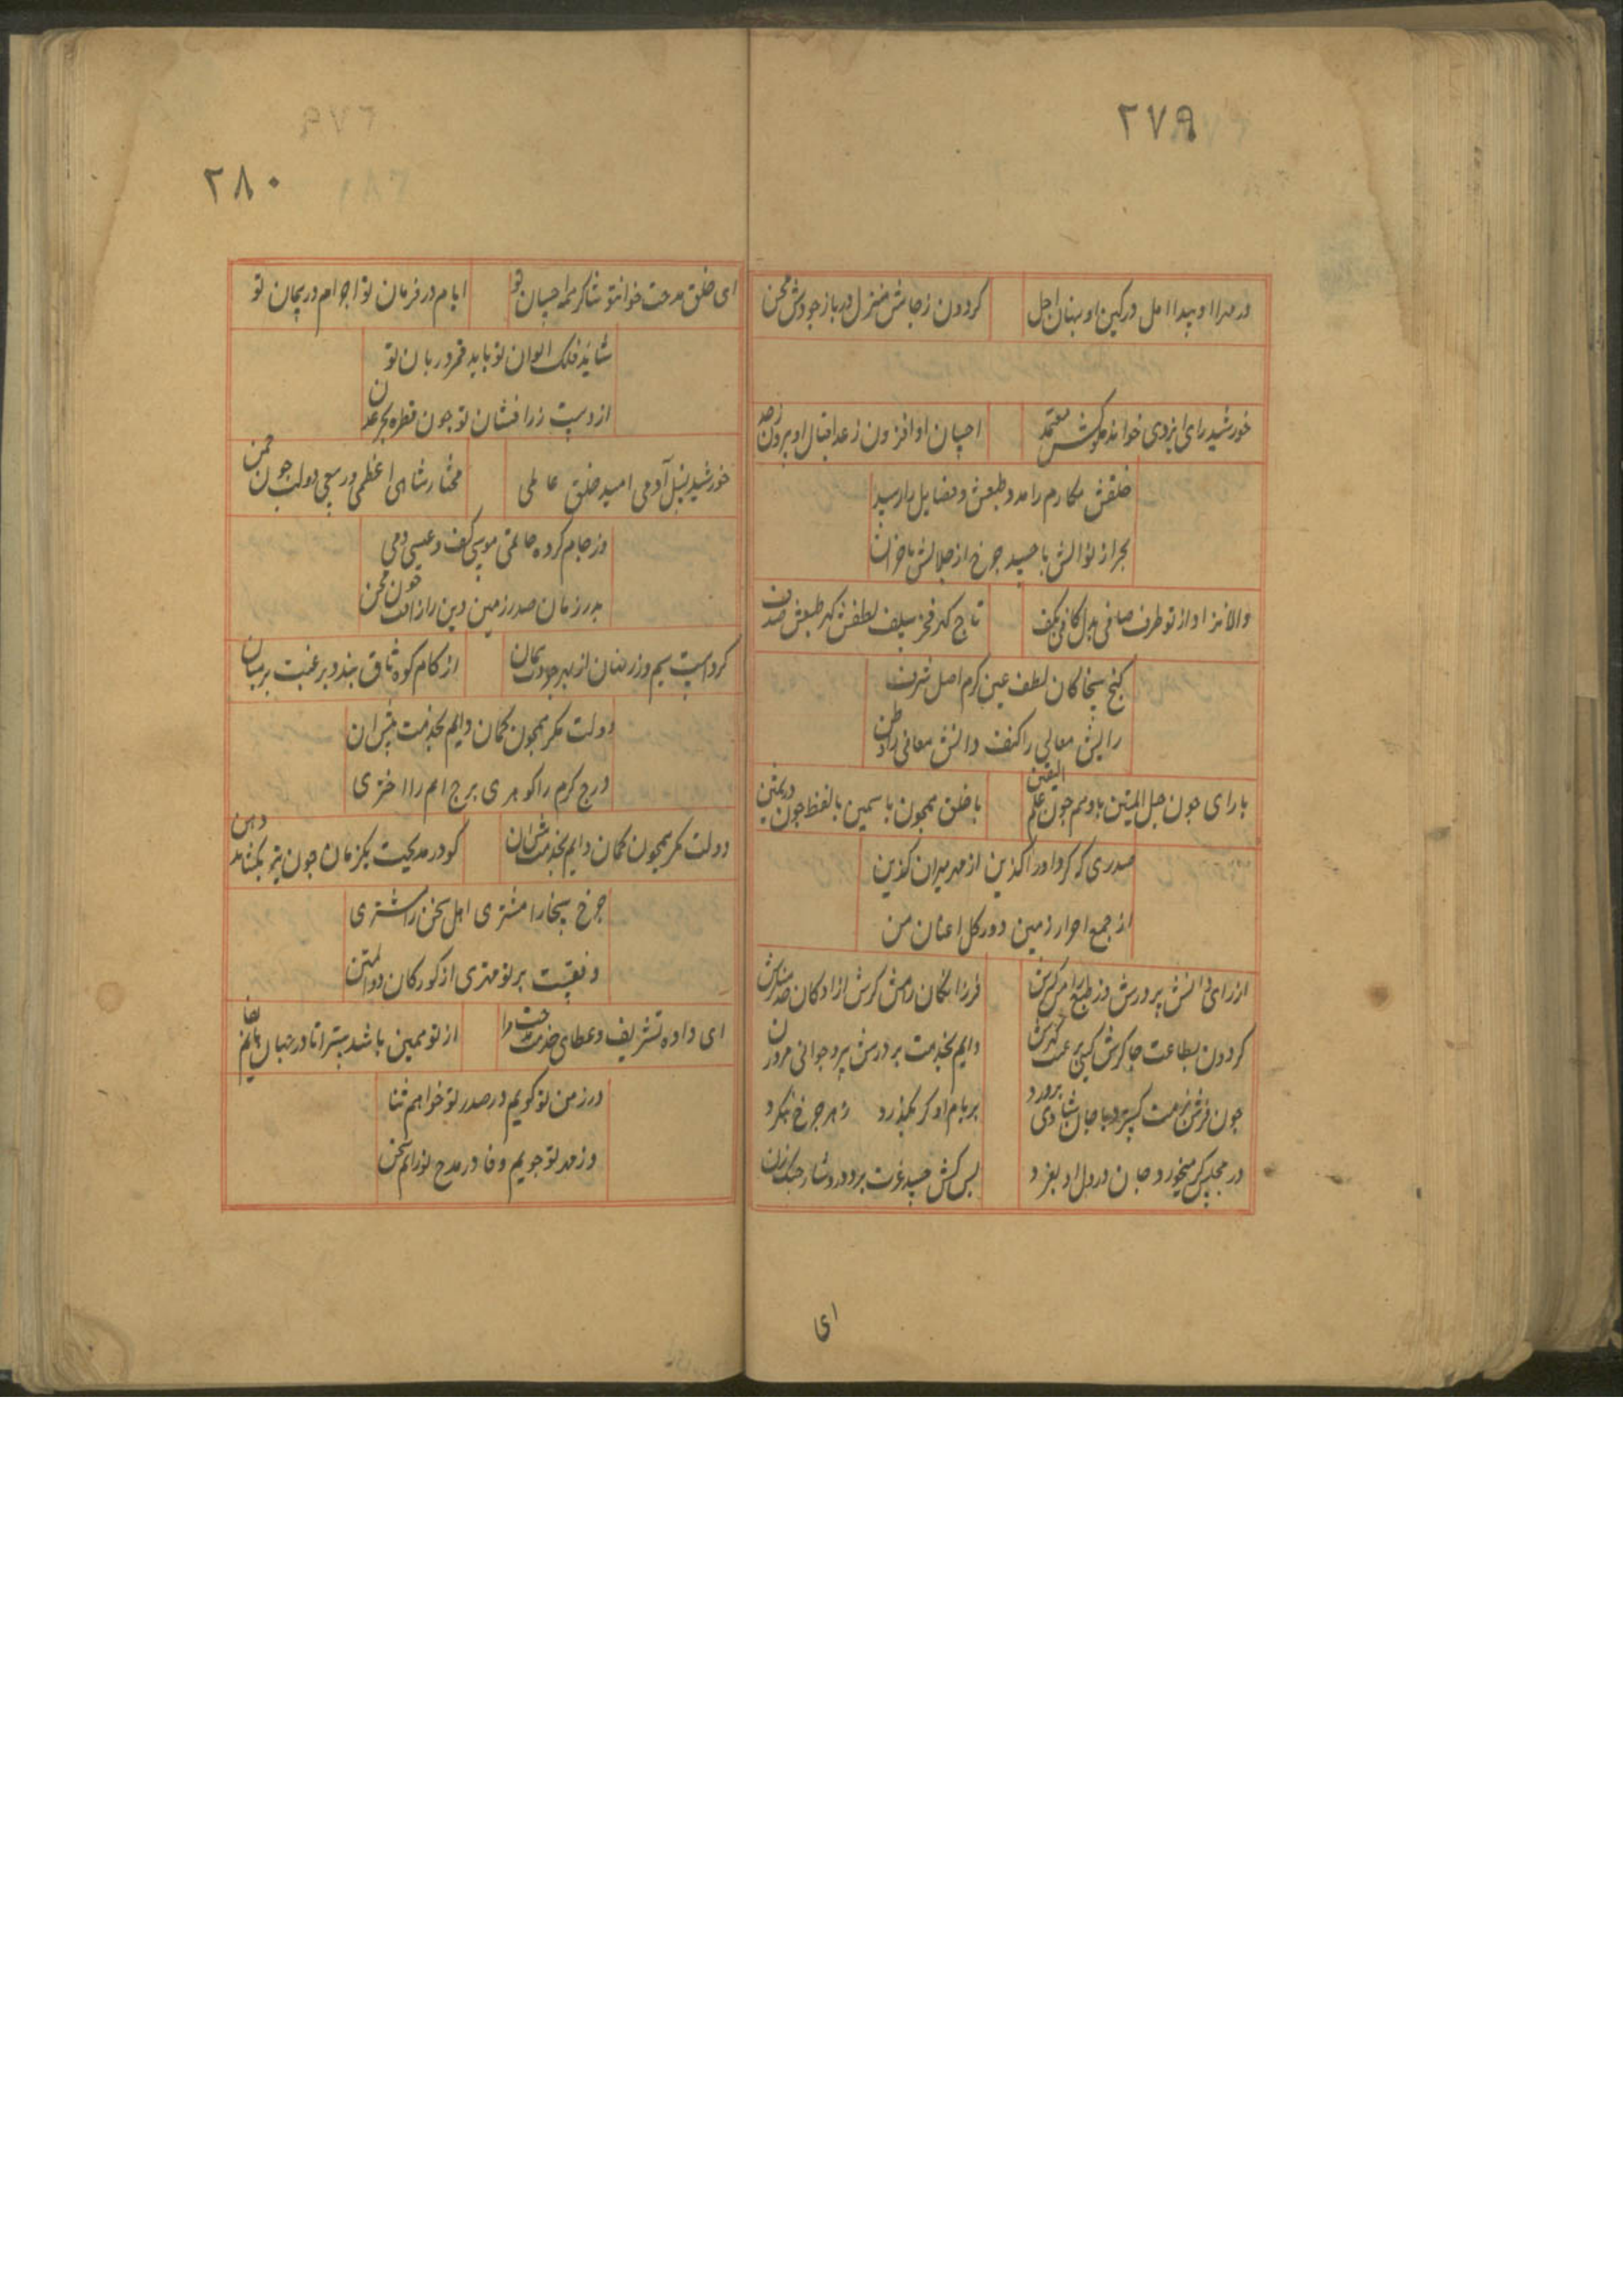 ۲۷۹
در مهر او پیدا امل در کین او پنهان اجل
کردون ز جاهش منزل دریا ز جودش ممتحن
خورشید رای ایزدی خواند ملوکش معتمد
احسان او افزون ز عد اقبال او بیرون ز حد
خلقش مکارم را مدد طبعش وفضایل را رسید
بحر از نوالش با حسد چرخ از جلالش با حزن
والا نژاد از تو طرف صافی بدل کافی بکف
تاج کهر فخر سلف لطفش کهر طبعش صدف
کنج سخا کان لطف عین کرم اصل شرف
رایش معالی را کنف دانش معانی را وطن
با رای چون حبل المتین با وهم چون علم الیقین
با خلق همچون یاسمین با لفظ چون در ثمین
صدری که کرد او را کزین از مهر میران کزین
از جمع احرار زمین دور کل اعیان من
از رای دانش پرورش وز طبع رامش کسترش
فرزانکان رامش کرش ازادکان مدحتکرش
کردون بطاعت چاکرش کیتی برغبت کهترش
دایم بخدمت بر درش پیر وجوانی مرد وزن
چون فرش نزهت کسترد با جان شادی پرورد
بر بام او کر بکذرد زهر چرخ بنکرد
در مجلس کر میخورد جان در دل او بغزد
بس کش حسد غیرت برد در وشار جنک زن
ای
۲۸۰
ای خلق مدحت خوان تو شاکر همه احسان تو
ایام در فرمان تو اجرام در پیمان تو
شاید فلک ایوان تو باید قمر دربان تو
از دست زر افشان تو چون قطره بحر عدن
خورشید نسل آدمی امید خلق عالمی
مختار شاه اعظمی در سعی دولت چون جمن
وز جام کرده حاتمی موسی کف و عیسی دمی
بدر زمان صدر زمین دین را ز آفت چون مجن
کرد است سیم و زر نهان از بهر جودت بیکمان
از کام کوه ثاق بندد برغبت بر میان
دولت مکر همچون کمان دایم بخدمتش ان
درج کرم را کوهری برج امم را اختری
دولت مکر همچون کمان دایم بخدمتش ان
کو در مدیحت یکزمان چون تیر بکشاید دهن
چرخ سخا را مشتری اهل سخن را مشتری
وقفست بر تو مهتری از کورکان دو المنن
ای داده تشریف وعطای خدمت مرا
از تو همین باشد سترا تا در جهان یابم بقا
در زمن تو کویم در صدر تو خواهم ثنا
وز مهد تو جویم وفا در مدح تو رانم سخن